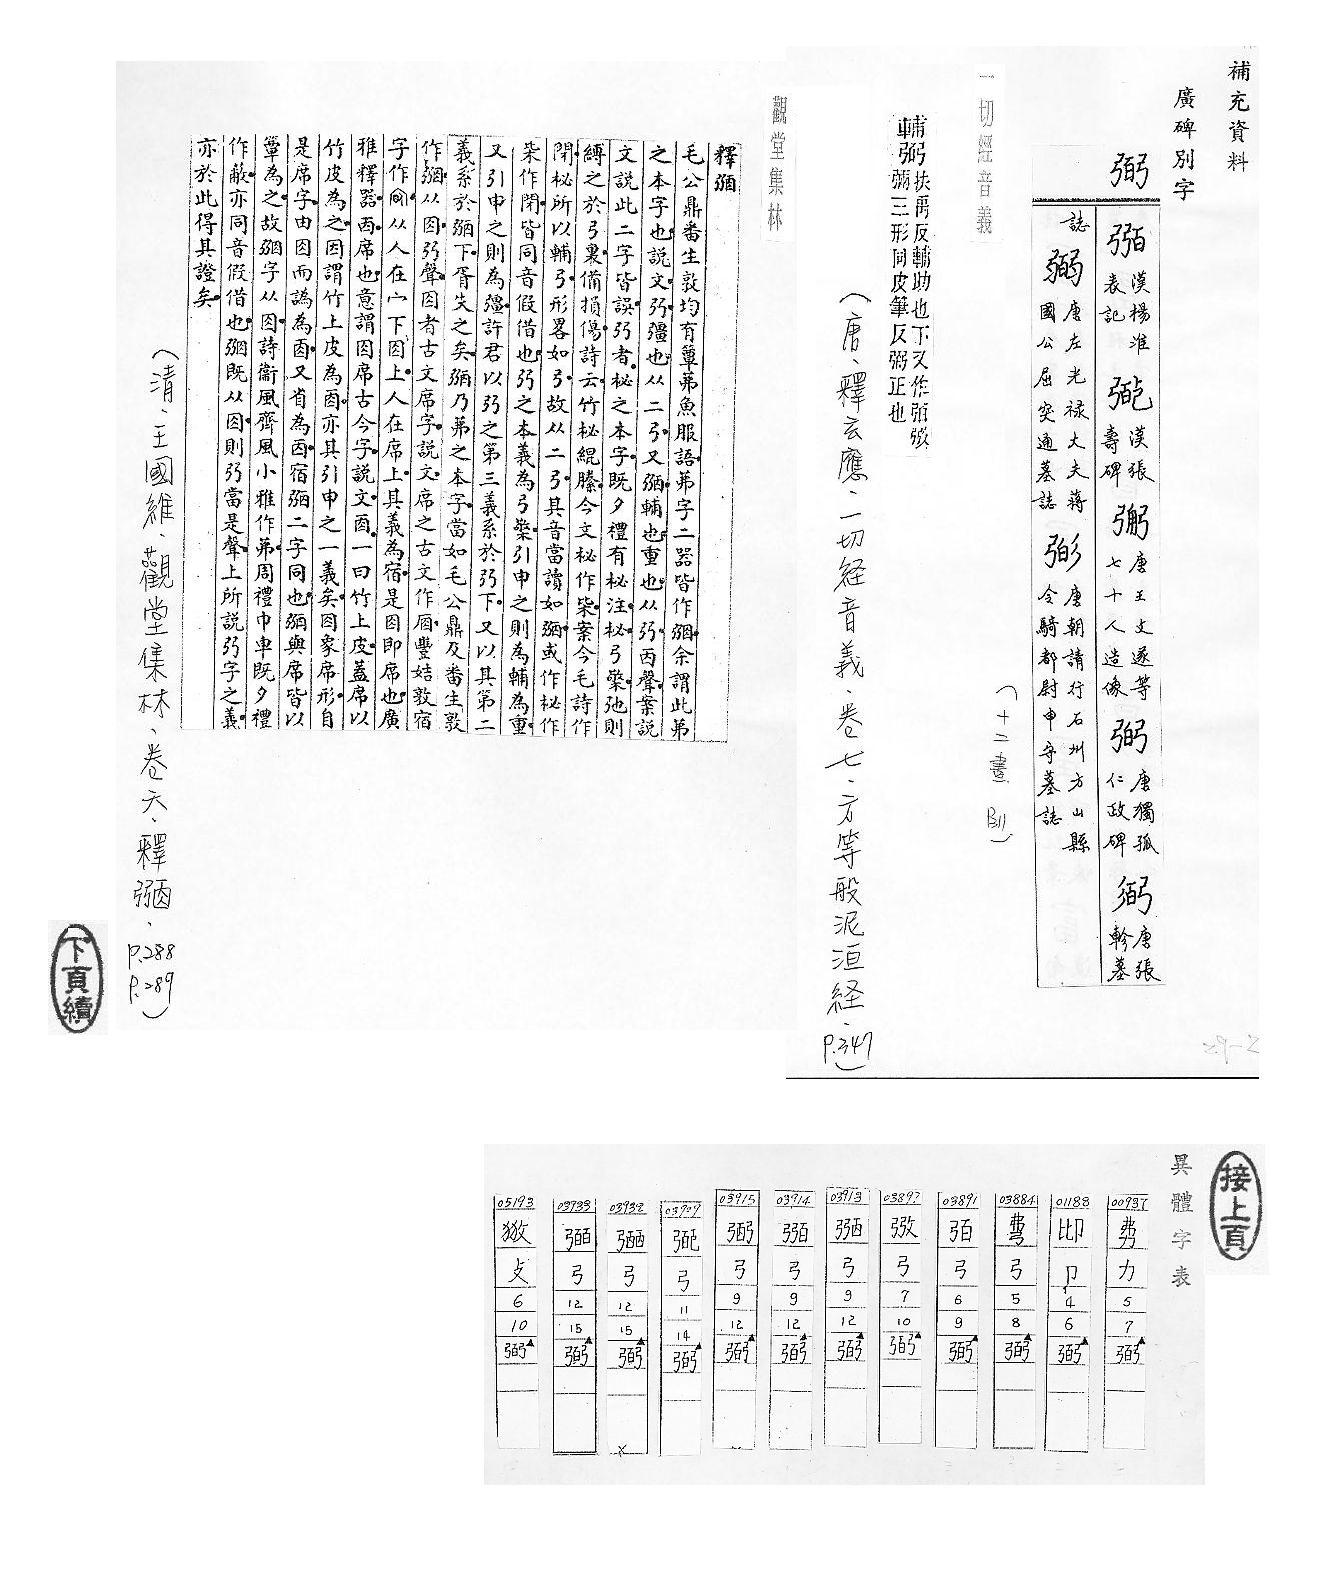 補充資料
廣碑別字
弼
漢楊淮表記
漢張壽碑
唐王文遂等七十人造像
弼 唐獨孤仁政碑
唐張軫墓
誌
唐左光禄大夫蔣國公屈突通墓誌
唐朝請行石州方山縣令騎都尉申守墓誌
(十二畫 BII)
一切經音義
輔弼扶禹反輔助也下又作
三形同皮筆反弼正也
(唐、釋玄應、一切経音義、卷七、方等般泥洹経、P.347)
觀堂集林
釋弼
毛公鼎番生敦均有簟茀魚服語茀字二器皆作弼余謂此茀
之本字也說文弜彊也从二弓又弼輔也重也从弜㐁聲案說
文說此二字皆誤弜者柲之本字既夕禮有柲注柲弓檠弛則
縛之於弓裏備損傷詩云竹柲緄縢今文柲作柴案今毛詩作
閉柲所以輔弓形畧如弓故从二弓其音當讀如弼或作柲作
柴作閉皆同音假借也弜之本義為弓檠引申之則為輔為重
又引申之則為彊許君以弜之第三義系於弜下又以其第二
義系於弼下胥失之矣弼乃茀之本字當如毛公鼎及番生敦
作弼从㐁弜聲㐁者古文席字說文席之古文作𠩌豐姞敦宿
字作从人在宀下㐁上人在席上其義為宿是㐁即席也廣
雅釋器㐁席也意謂㐁席古今字說文㐁一曰竹上皮蓋席以
竹皮為之因謂竹上皮為㐁亦其引申之一義矣㐁象席形自
是席字由㐁而譌為㐁又省為㐁宿弼二字同也弼與席皆以
簟為之故弼字从㐁詩衞風齊風小雅作茀周禮巾車既夕禮
作蔽亦同音假借也弼既从㐁則弜當是聲上所説弜字之義
亦於此得其證矣
(清、王國維、觀堂集林、卷六、釋弼、P.288 P.289)
下頁續
29-2
接上頁
異體字表
00937 力 5 7 弼
01188 卩 4 6 弼
03884 弓 5 8 弼
03891 弓 6 9 弼
03897 弓 7 10 弼
03913 弓 9 12 弼
03914 弓 9 12 弼
03915 弓 9 12 弼
03909 弓 11 14 弼
03932 弓 12 15 弼
03933 弓 12 15 弼
05193 攴 6 10 弼